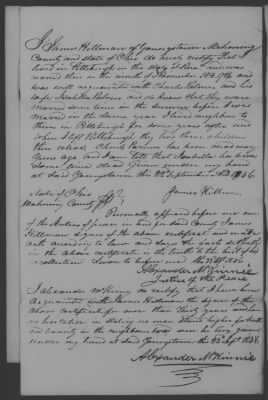 I James Hillman of Youngstown Mahoning
County and State of Ohio do hereby certify that I
lived in Pittsburgh in the State of Penn and was
married there in the month of November 1786 and
was well acquainted with Charles and his
wife Isabella and do know that they were
married some time in the summer before I was
married in the same year I lived neighbor to
them in Pittsburgh for some years after and
when I left Pittsburgh they had three children
then alive Charles has been dead many
years ago and I am told that Isabella has been
some time dead Given under my hand
at said Youngstown this 22 September AD 1846
James Hillman
State of Ohio
Mahoning County
Personally appeared before me one
of the Justices of the peace in and for said County James
Hillman signer of the above certificate and made
oath according to law and says the facts set forth
in the above certificate is the truth to the best of his
recollection Sworn to before me this 22 Sept 1846
Alexander McKinnie
Justice of the Peace
I Alexander McKinnie do certify that I have been
acquainted with James Hillman the signer of the
above certificate for more than thirty years and
no hesitation in stating no man stands higher for truth
and veracity in the neighbourhood
under my hand at said Youngstown this 22 Sept 1846
Alexander McKinnie